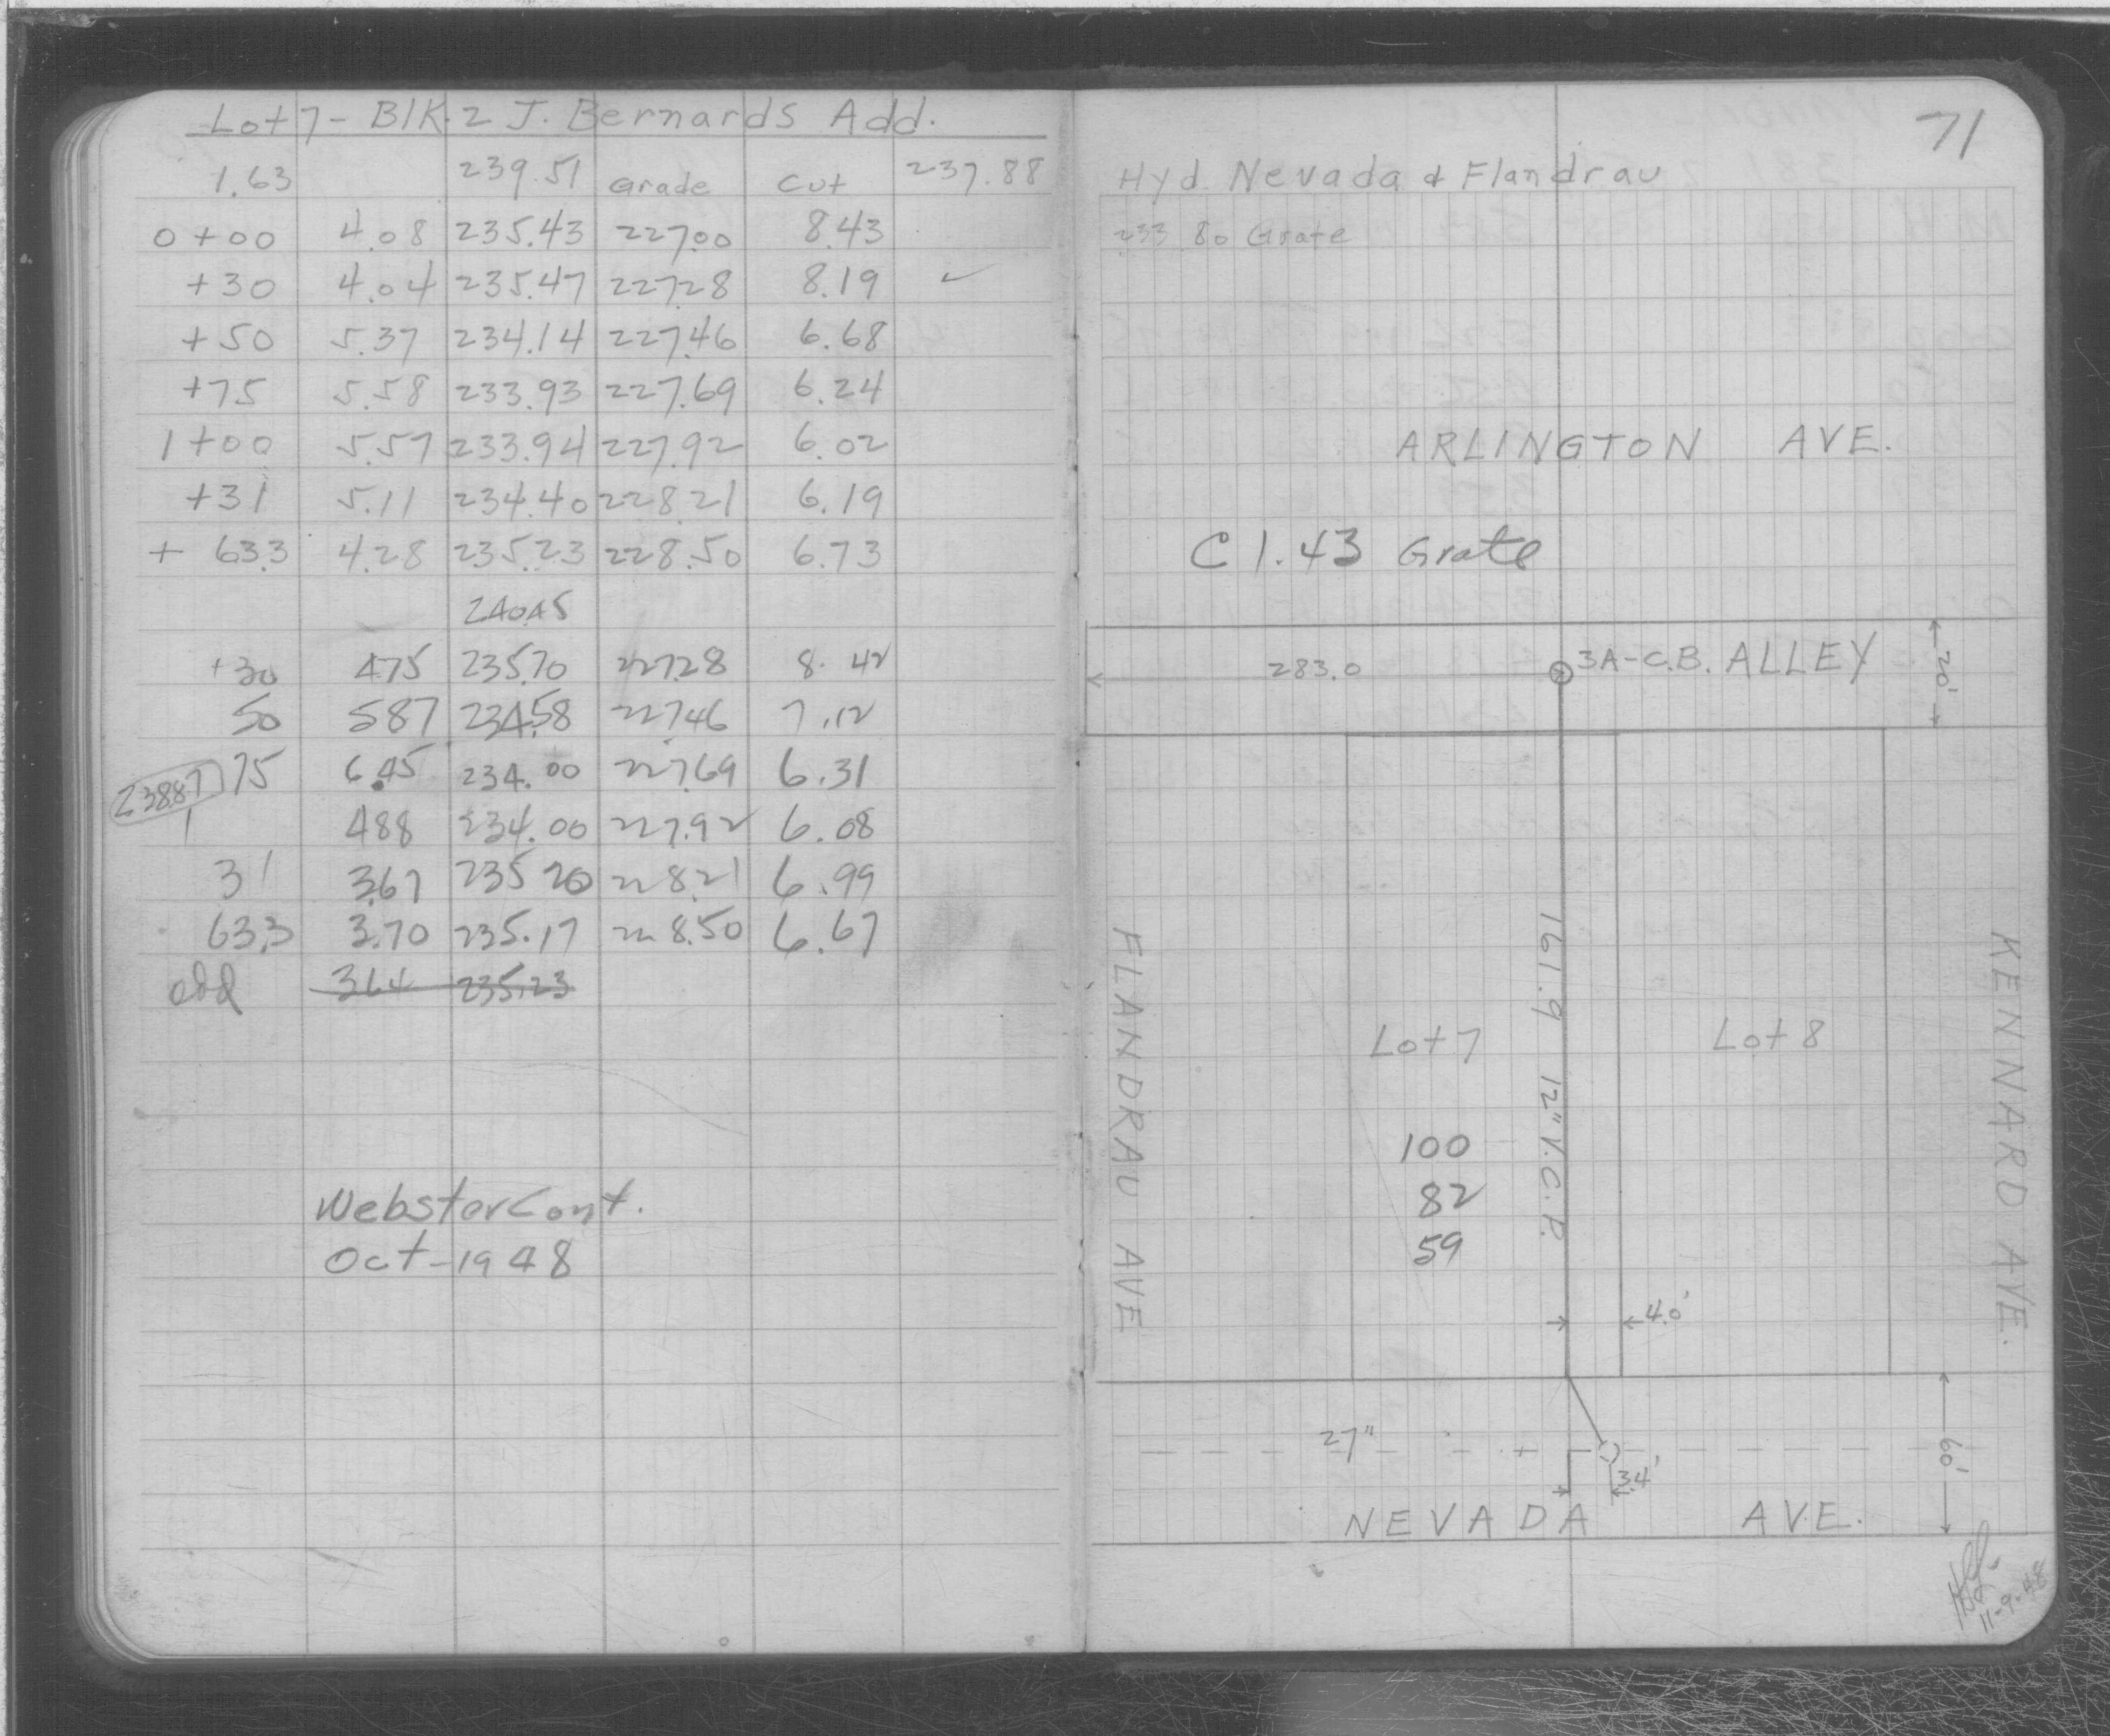 Lot 7 - Blk. 2 J. Bernards Add.
1.63 239.51 Grade Cut 237.88
0+00 4.08 235.43 227.00 8.43
+30 4.04 235.47 227.28 8.19 ✓
+50 5.37 234.14 227.46 6.68
+75 5.58 233.93 227.69 6.24
1+00 5.57 233.94 227.92 6.02
+31 5.11 234.40 228.21 6.19
+ 63.3 4.28 235.23 228.50 6.73
240.45
+30 475 235.70 227.28 8.42
50 587 234.58 227.46 7.12
75 6.45 234.00 227.69 6.31
238.87
1 488 234.00 227.92 6.08
31 3.67 235.20 228.21 6.99
63.3 3.70 235.17 228.50 6.67
364 235.23
Webster Cont.
Oct-1948
71
Hyd. Nevada & Flandrau
233.80 Grate
ARLINGTON AVE.
C 1.43 Grate
283.0 3A-C.B. ALLEY 20'
FLANDRAU AVE
161.9 12" V.C.P.
KENNARD AVE.
Lot 7 Lot 8
100
82
59
4.0'
27"
3.4'
60'
NEVADA AVE.
11-9-48